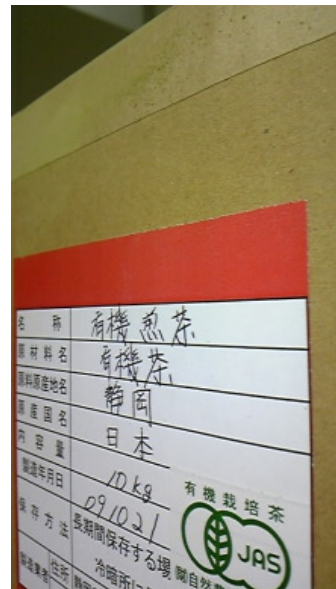 名称 有機煎茶
原材料名 有機茶
原料原産地名 静岡
原産国名 日本
内容量 10kg
製造年月日 091021
保存方法 長期間保存する場
冷暗所に
製造業者 住所 静岡
有機栽培茶
JAS